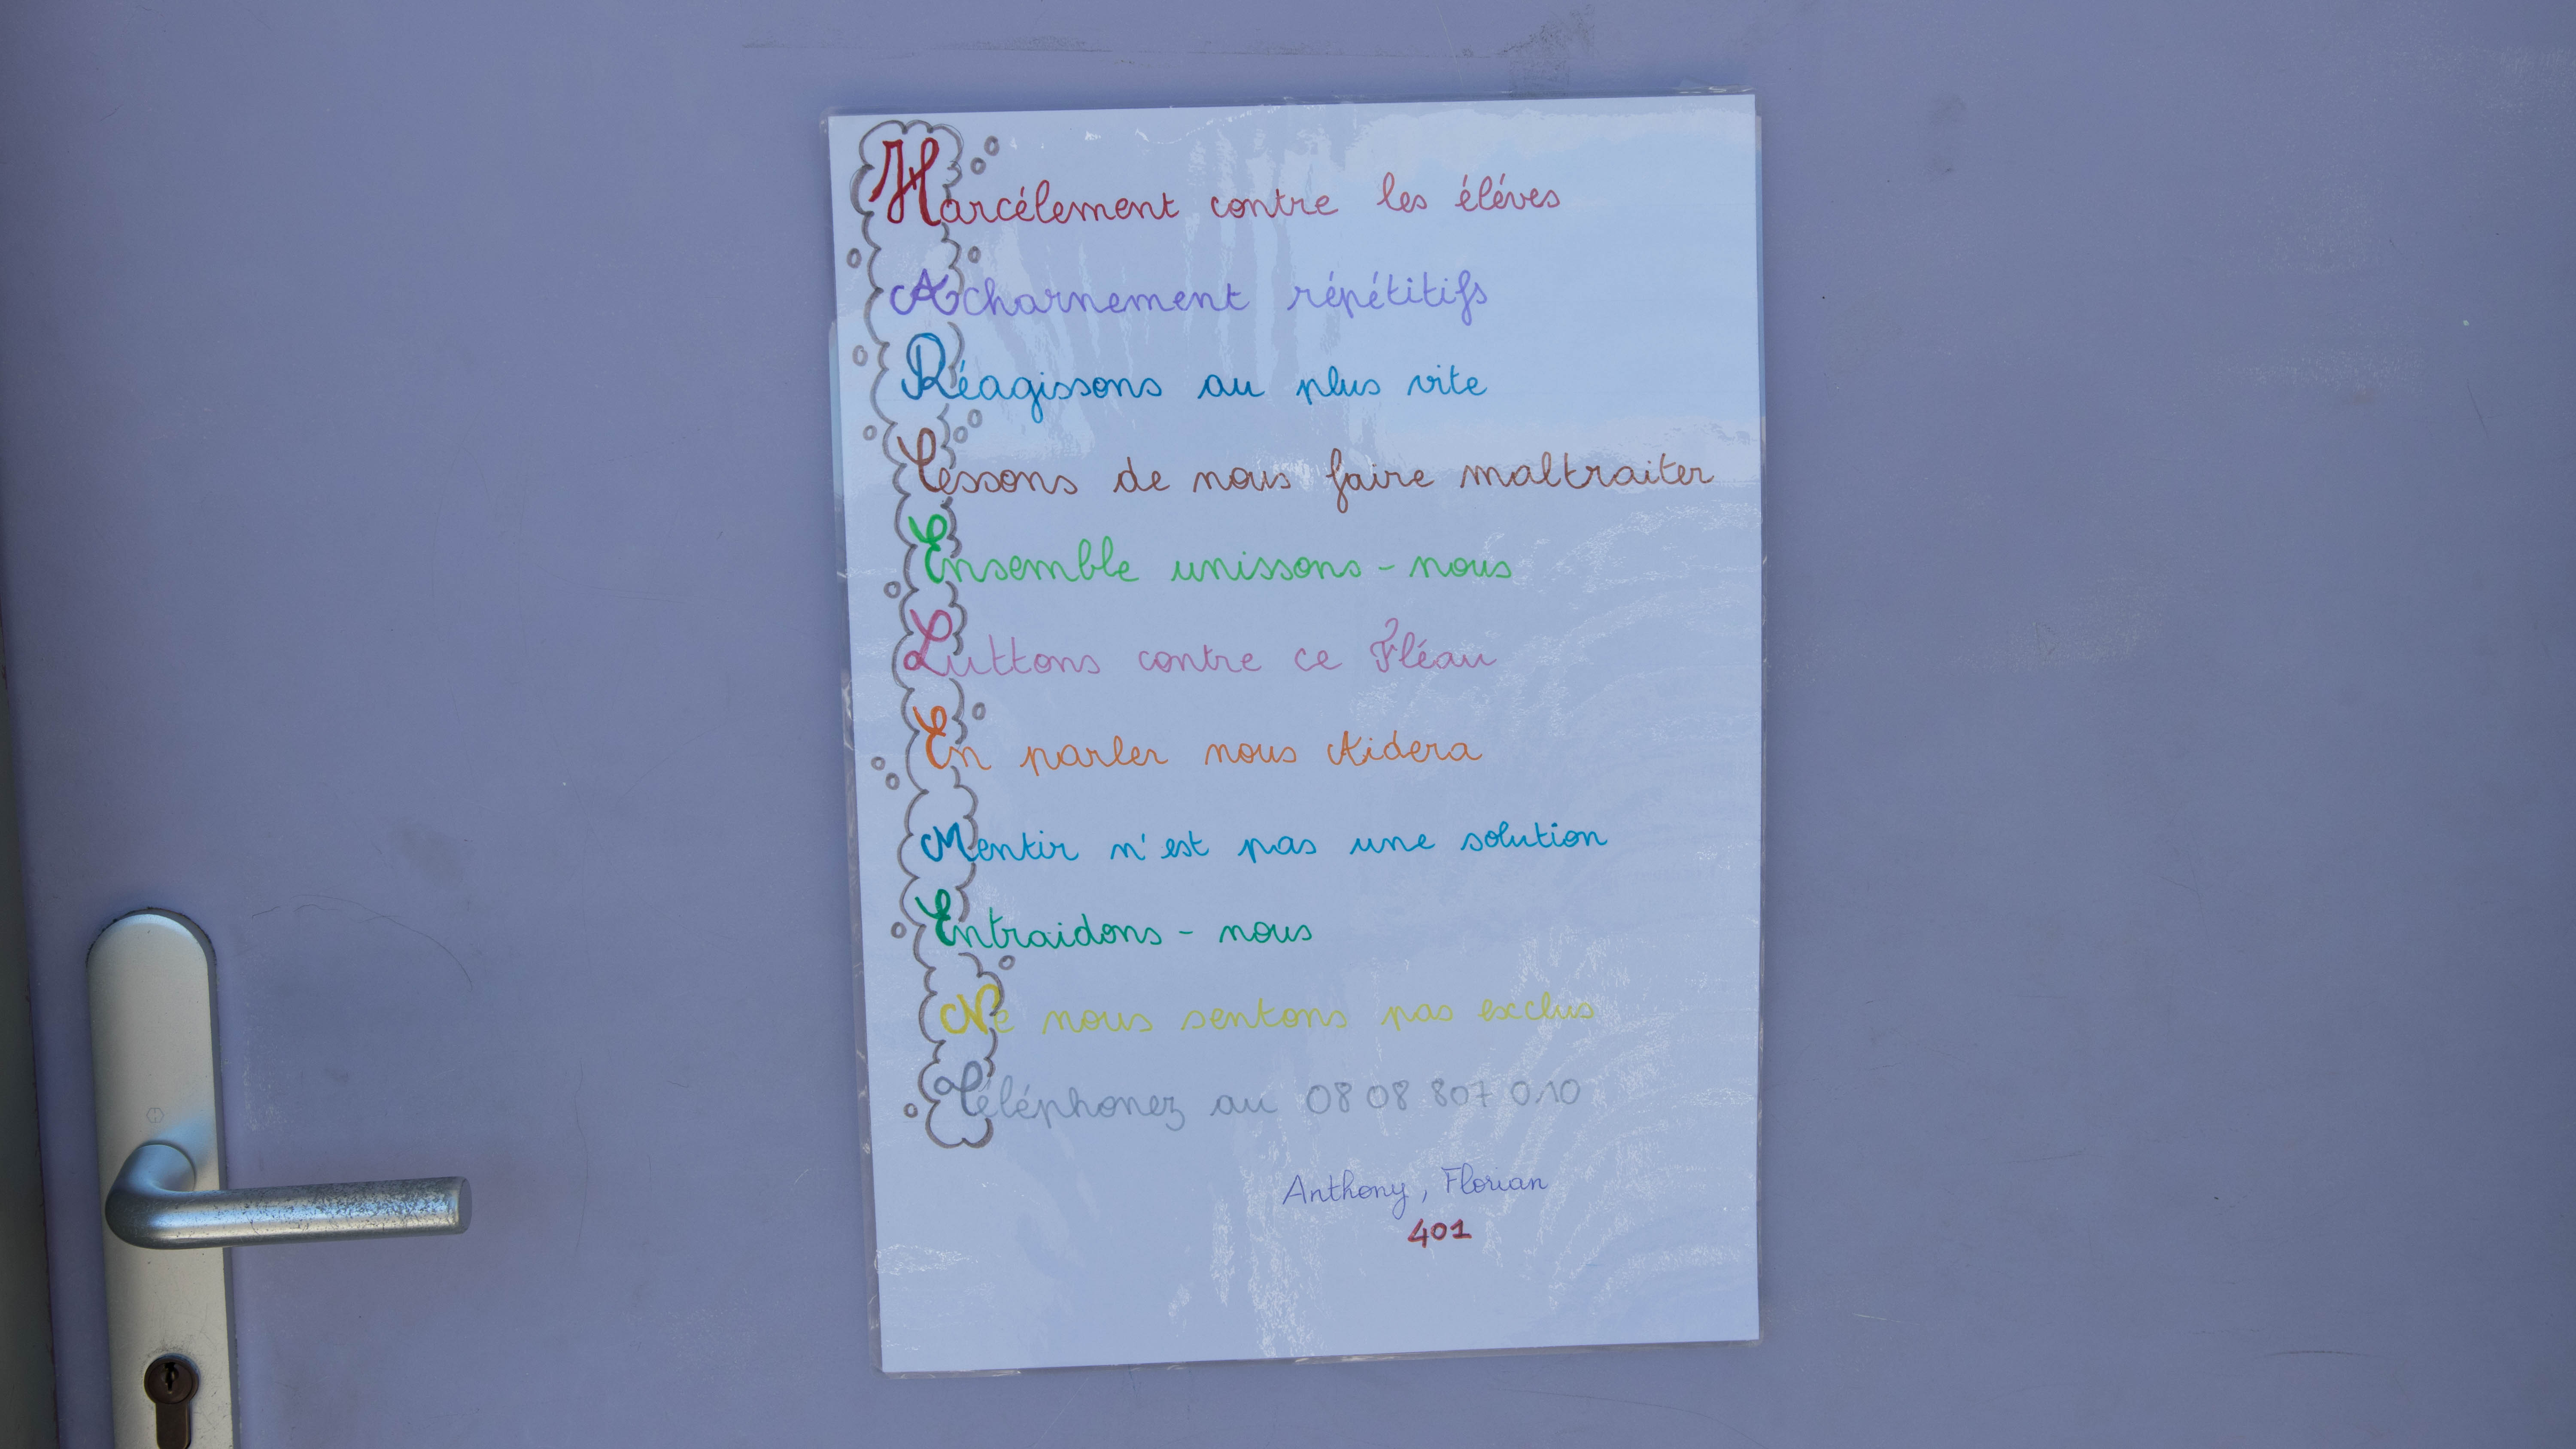 Harcélement contre les éléves
Acharnement répétitifs
Réagissons au plus vite
Cessons de nous faire maltraiter
Ensemble unissons-nous
Luttons contre ce Fléau
En parler nous Aidera
Mentir n'est pas une solution
Entraidons-nous
Ne nous sentons pas exclus
Téléphonez au 08 08 807 010
Anthony, Florian
401